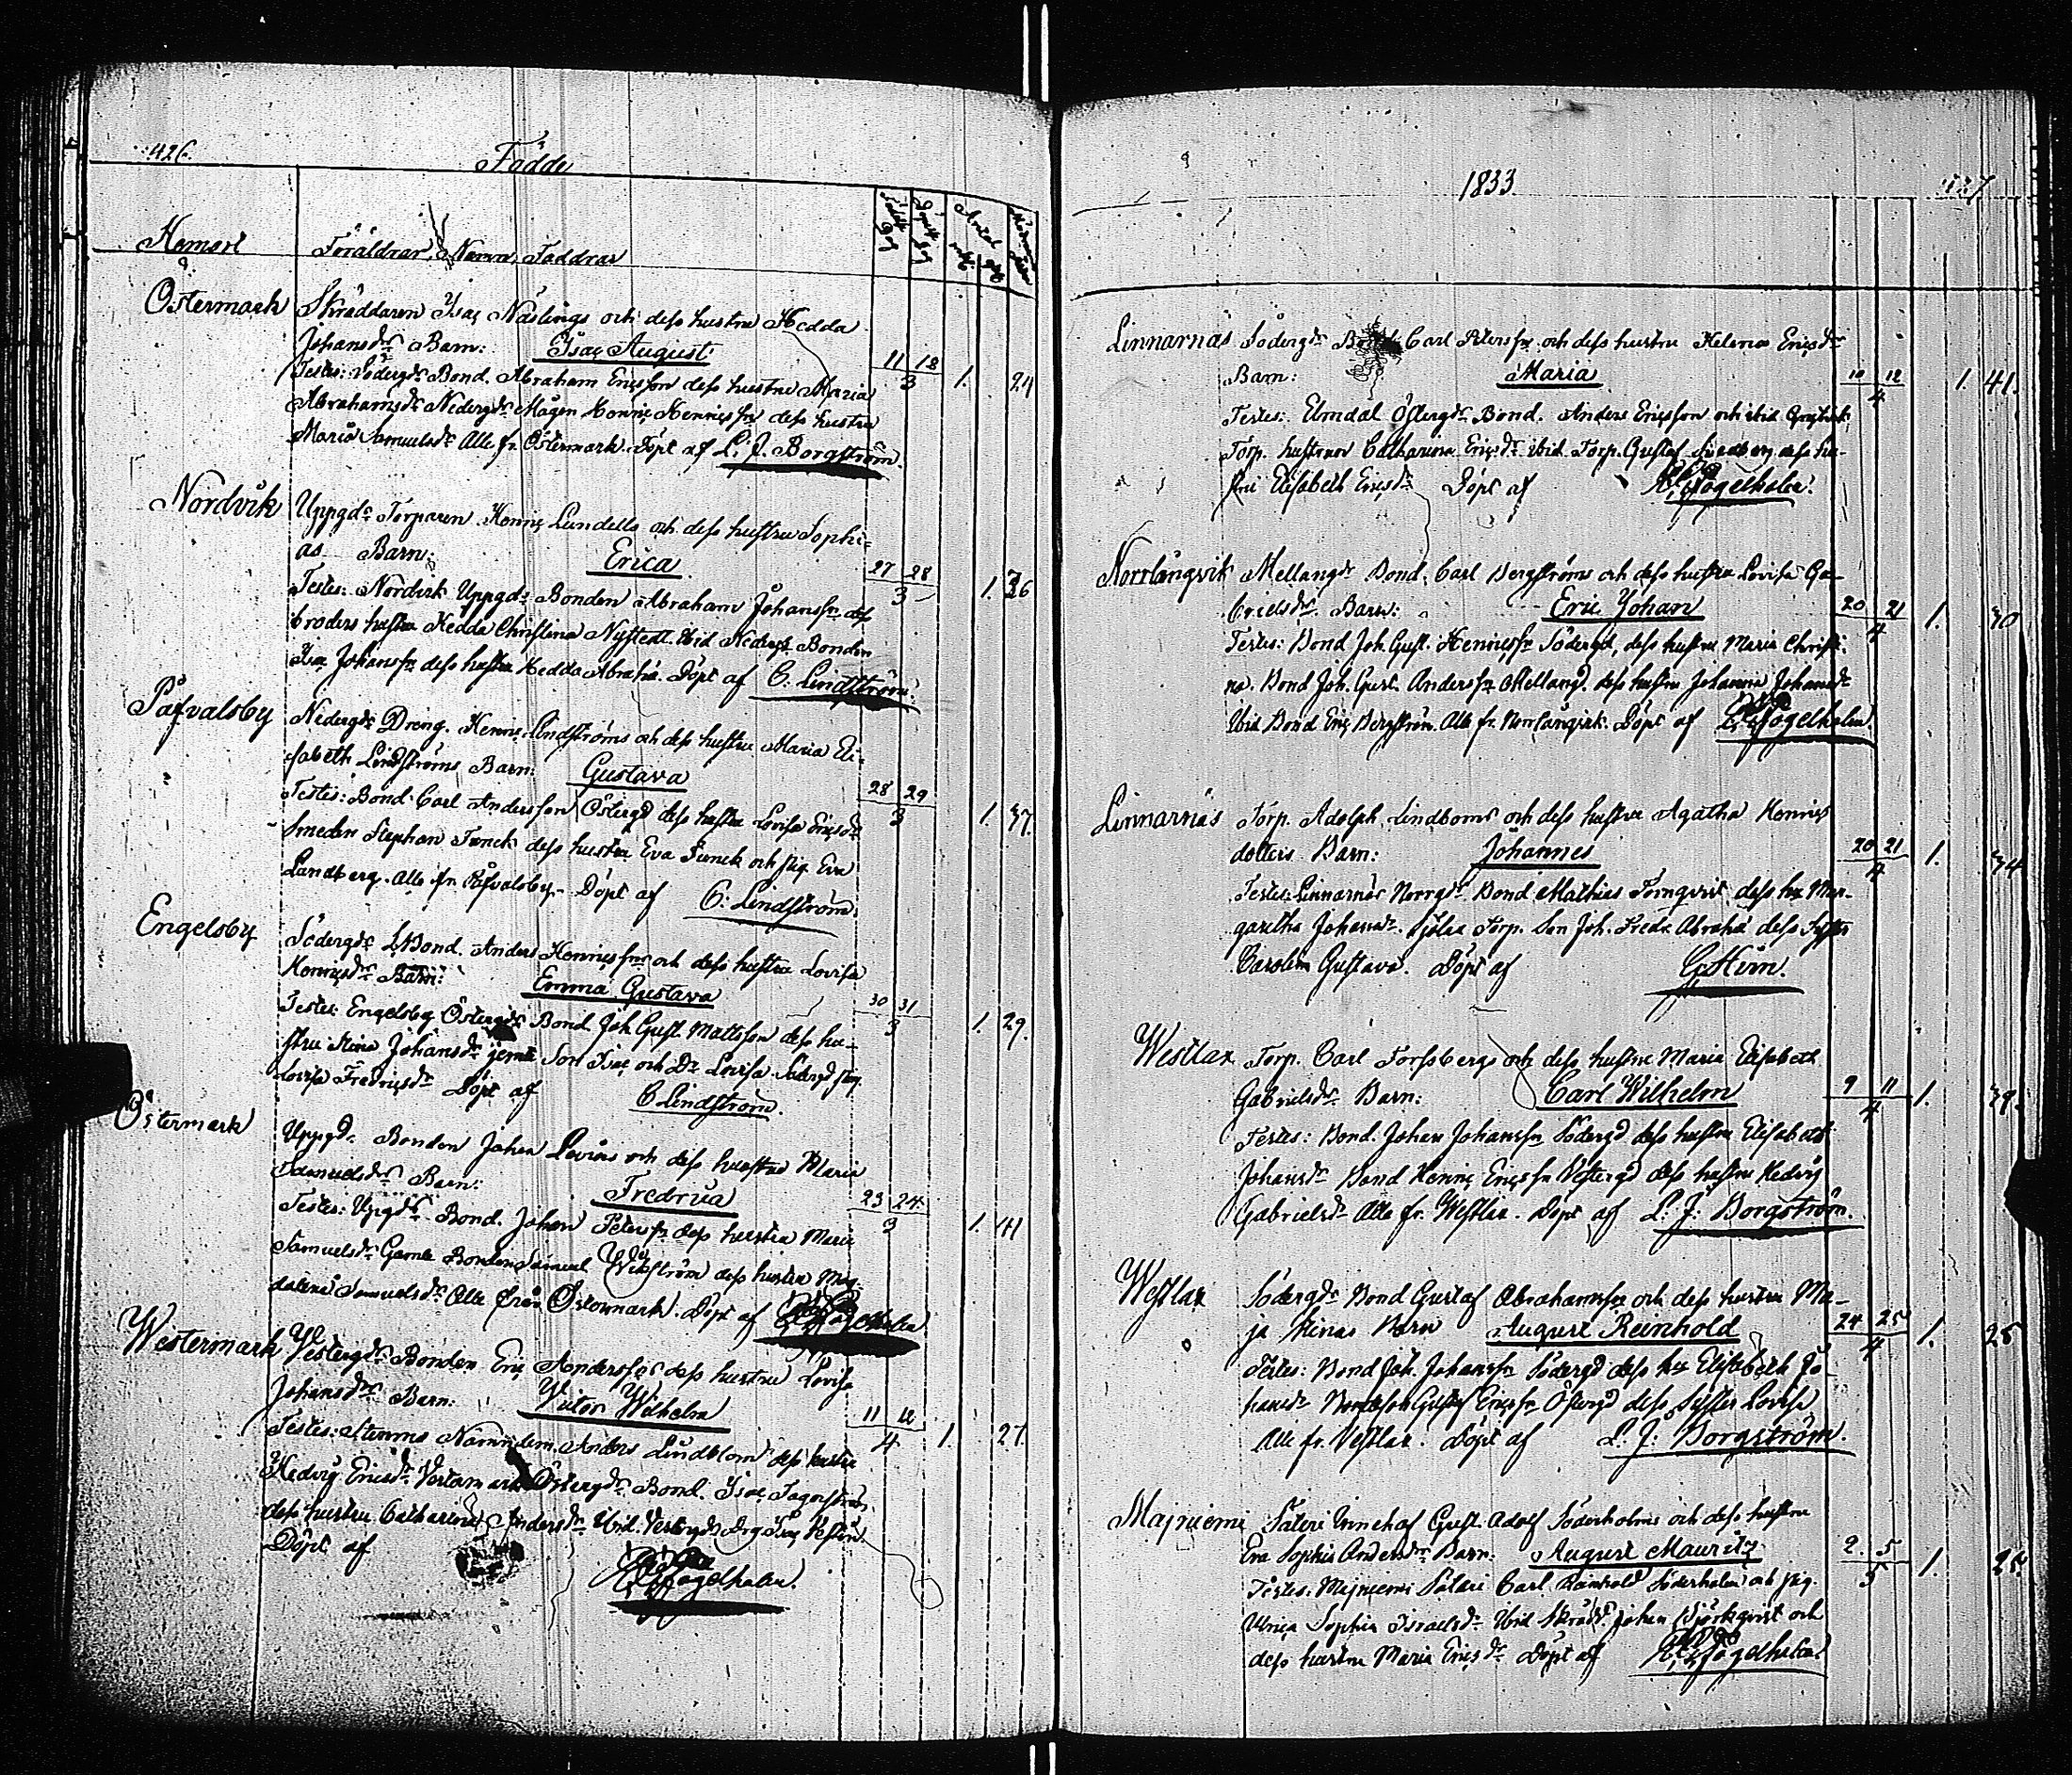 426.
Födde
Hemort
Föräldrar, Namn, Faddrar
Födelse Dag
Döpelse Dag
Antal
mk. qk.
Östermark Skräddaren Isaç Näslings och dess hustru Hedda
Johansdrs Barn: Isaç August 11 18
Testes: Södergds Bond. Abraham Ericsson dess hustru Maria 3 1. 24
Abrahamsdr Nedergds Mågen Henriç Henriçssn dess hustru
Maria Samuelsdr Alle fr. Östermark. Döpt af L. J. Borgström.
Nordvik Uppgds Torparen Henriç Lundells och dess hustru Sophi=
as Barn: Erica 27 28
Testes: Nordvik Uppgds Bonden Abraham Johanssn dess 3 1. 36
broders hustru Hedda Christina Nystedt. ibid Nedergds Bonden
Isaç Johanssn dess hustru Hedda Abrahā. Döpt af C. Lindström.
Påfvalsby Nedergds Dreng. Henriç Lindströms och dess hustru Maria Eli-
sabeth Lindströms Barn: Gustava 28 29
Testes: Bond. Carl Andersson Östergd dess hustru Lovisa Ericsdr 3 1. 37.
Smeden Stephan Funck dess hustru Eva Funck och pig. Eva
Lundberg. Alle fr. Påfvalsby. Döpt af C. Lindström
Engelsby Södergds Bond. Anders Henriçssns och dess hustru Lovisa
Henriçsdrs Barn: Emma Gustava 30 31
Testes: Engelsby Östergds Bond. Joh. Gust. Mattsson dess hu- 3 1. 29.
stru Stina Johansdr jemte Son Isaç och Dr Lovisa. Södergd pig.
Lovisa Fredriçsdr Döpt af C Lindström.
Östermark Uppgds Bonden Johan Levins och dess hustru Maria
Samuelsdrs Barn: Fredrica 23 24
Testes: Uppgds Bond. Johan Peterssn dess hustru Maria 3 1. 41
Samuelsdr Gamla Bonden Samuel Wikström dess hustru Mag-
dalena Samuelsdr Alle från Östermark. Döpt af Fogelholm
Westermark Vestergds Bonden Eriç Anderssns dess hustru Lovisa
Johansdrs Barn: Victor Wilhelm 11 12
Testes: Stemms Nämndem. Anders Lindblom dess hustru 4 1. 27.
Hedvig Ericsdr Vestermark Östergds Bond. Isaç
dess hustru Catharina Andersdr ibid. Vestergds Drg Isaç
Döpt af Fogelholm.
1833
427
Linnarnäs Södergds Bond. Carl Peterssns och dess hustru Helena Eriçsdrs
Barn: Maria 10 12 4 1. 41.
Testes: Elmdal Östergds Bond. Anders Ericsson och ibid
Torp. hustrun Catharina Eriçsdr ibid. Torp. Gustaf dess hu-
stru Elisabeth Eriçsdr Döpt af Fogelholm.
Norrlångvik Mellangds Bond. Carl Bergströms och dess hustru Lovisa Ga-
brielsdrs Barn: Eric Johan 20 21 4 1. 30
Testes: Bond Joh. Gust. Henricssn Södergd, dess hustru Maria Christi-
na. Bond Joh. Gust. Anderssn Mellangd. dess hustru Johanna Johansdr
ibid Bond Eriç Bergström. Alle fr. Norrlångvik. Döpt af Fogelholm
Linnarnäs Torp. Adolph Lindboms och dess hustru Agatha Henriçs
dotters Barn: Johannes 20 21 4 1. 34
Testes: Linnarnäs Norrgds Bond Mathias Törnqvist dess hu Mar-
garetha Johansdr. Torp. Son Joh. Fredr. Abrahā dess Syster
Carolina Gustava. Döpt af G. Heim.
Westlax Torp. Carl Forssbergs och dess hustru Maria Elisabeth
Gabrielsdrs Barn: Carl Wilhelm 9 11 4 1. 39.
Testes: Bond. Johan Johanssn Södergd dess hustru Elisabeth
Johansdr Bond Henriç Eriçssn Vestergd dess hustru Hedvig
Gabrielsdr Alle fr. Westlax. Döpt af L. J. Borgström.
Westlax Södergds Bond Gustaf Abrahamssns och dess hustru Ma-
ja Stinas Barn August Reinhold 24 25 4 1. 25
Testes: Bond Joh. Johanssn Södergd dess hu Elisabeth Jo-
hansdr Gustaf Ericssn Östergd dess Syster Lovisa
Alle fr. Vestlax. Döpt af L. J. Borgström.
Majniemi Säteri Innehaf Gust. Adolf Söderholms och dess hustru
Eva Sophia Andersdrs Barn: August Mauritz 2 5 5 1. 25.
Testes. Majniemi Säteri Carl Reinhold Söderholm och pig.
Ulrica Sophia Israelsdr ibid Skrädd. Johan Björkqvist och
dess hustru Maria Eriçsdr Döpt af Fogelholm